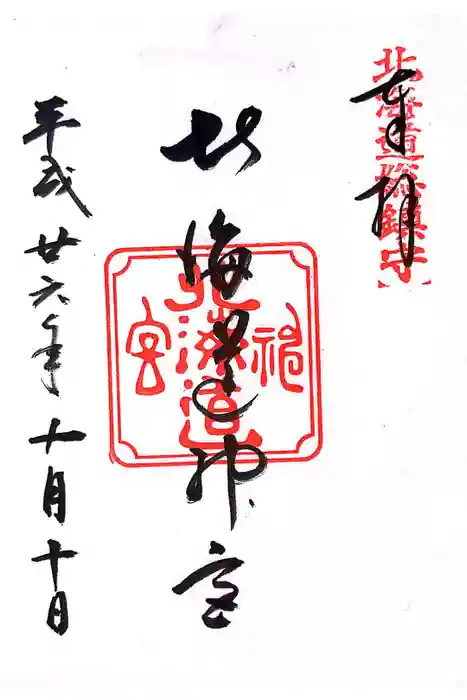 北海道総鎮守
奉拝
北海道神宮
北海道
神
宮
平成廿六年十月十日